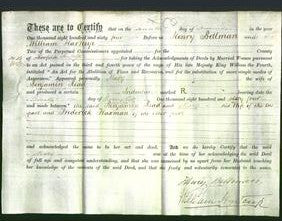 These are to Certify that on the day of in the year
One thousand eight hundred and sixty four Before us Henry Bellman and
William Hartcup
Two of the Perpetual Commissioners appointed for the County
of for taking the Acknowledgments of Deeds by Married Women pursuant
to an Act passed in the third and fourth years of the reign of His Majesty King William the Fourth,
intituled "An Act for the Abolition of Fines and Recoveries, and for the substitution of more simple modes of
Assurance," Appeared personally Mary the wife of
Benjamin Read and produced
a certain Indenture marked R bearing date the
day of One thousand eight hundred and sixty four
and made between the said Benjamin Read and Mary his Wife of the one
part and Frederick Harmer of the other part
and acknowledged the same to be her act and deed. And we do hereby certify that the said
Mary was at the time of her acknowledging the said Deed
of full age and competent understanding, and that she was examined by us apart from her Husband touching
her knowledge of the contents of the said Deed, and that she freely and voluntarily consented to the same.
Henry Bellman
William Hartcup